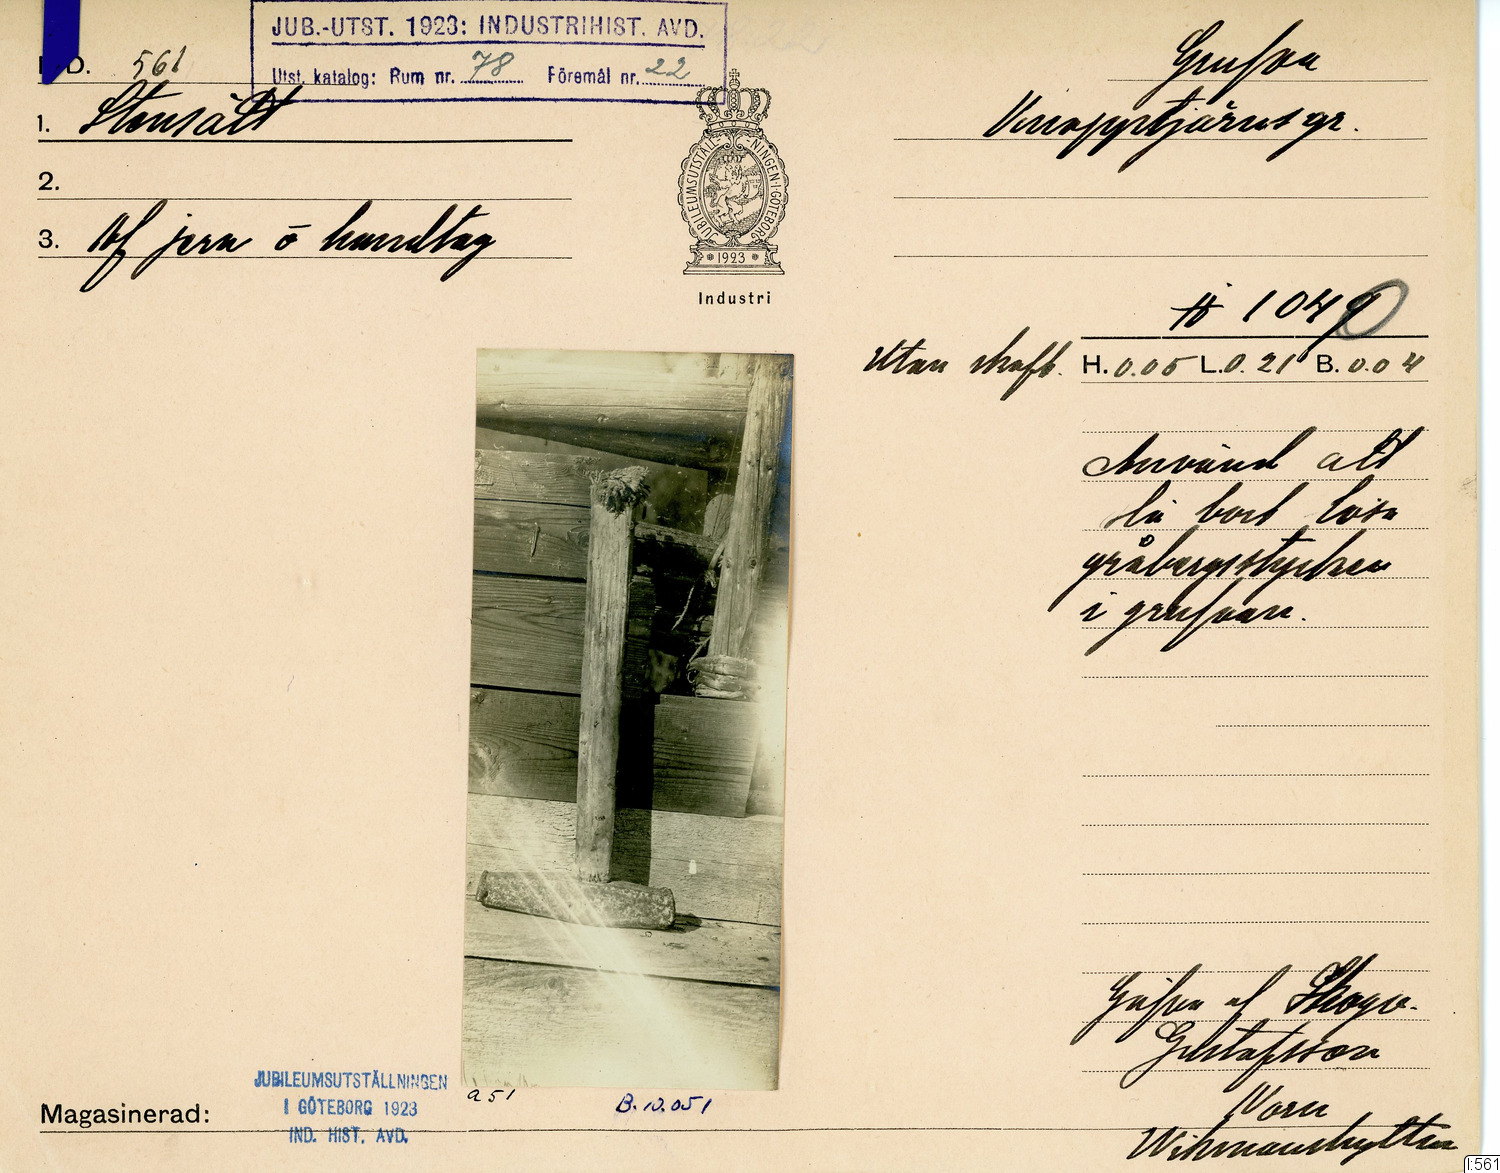 JUB.-UTST. 1923: INDUSTRIHIST. AVD.
Utst. katalog: Rum nr. 78 Föremål nr. 22
D. 561
1. Stensält
2.
3. Af jern o handtag
JUBILEUMSUTSTÄLLNINGEN I GÖTEBORG
1923
Industri
Grufva
Knapptjärnsgr.
1049
Utan skaft. H. 0.05 L. 0.21 B. 0.04
Använd att
slå bort lösa
gråbergsstycken
i grufvan.
Gåfva af Skogv.
Gustafsson
Norn
Wikmanshyttan
a 51
B.10.051
Magasinerad:
JUBILEUMSUTSTÄLLNINGEN
I GÖTEBORG 1923
IND. HIST. AVD.
I:561